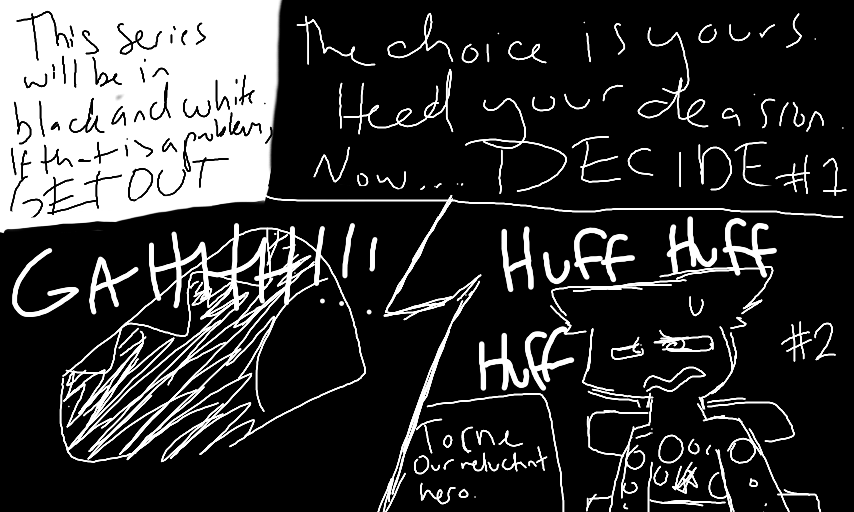 This series
will be in
black and white.
If that is a problem,
GET OUT
The choice is yours.
Heed your decision.
Now.... DECIDE #1
GAHHHH!!!...
HUFF HUFF
HUFF
#2
Torne
Our reluctant
hero.